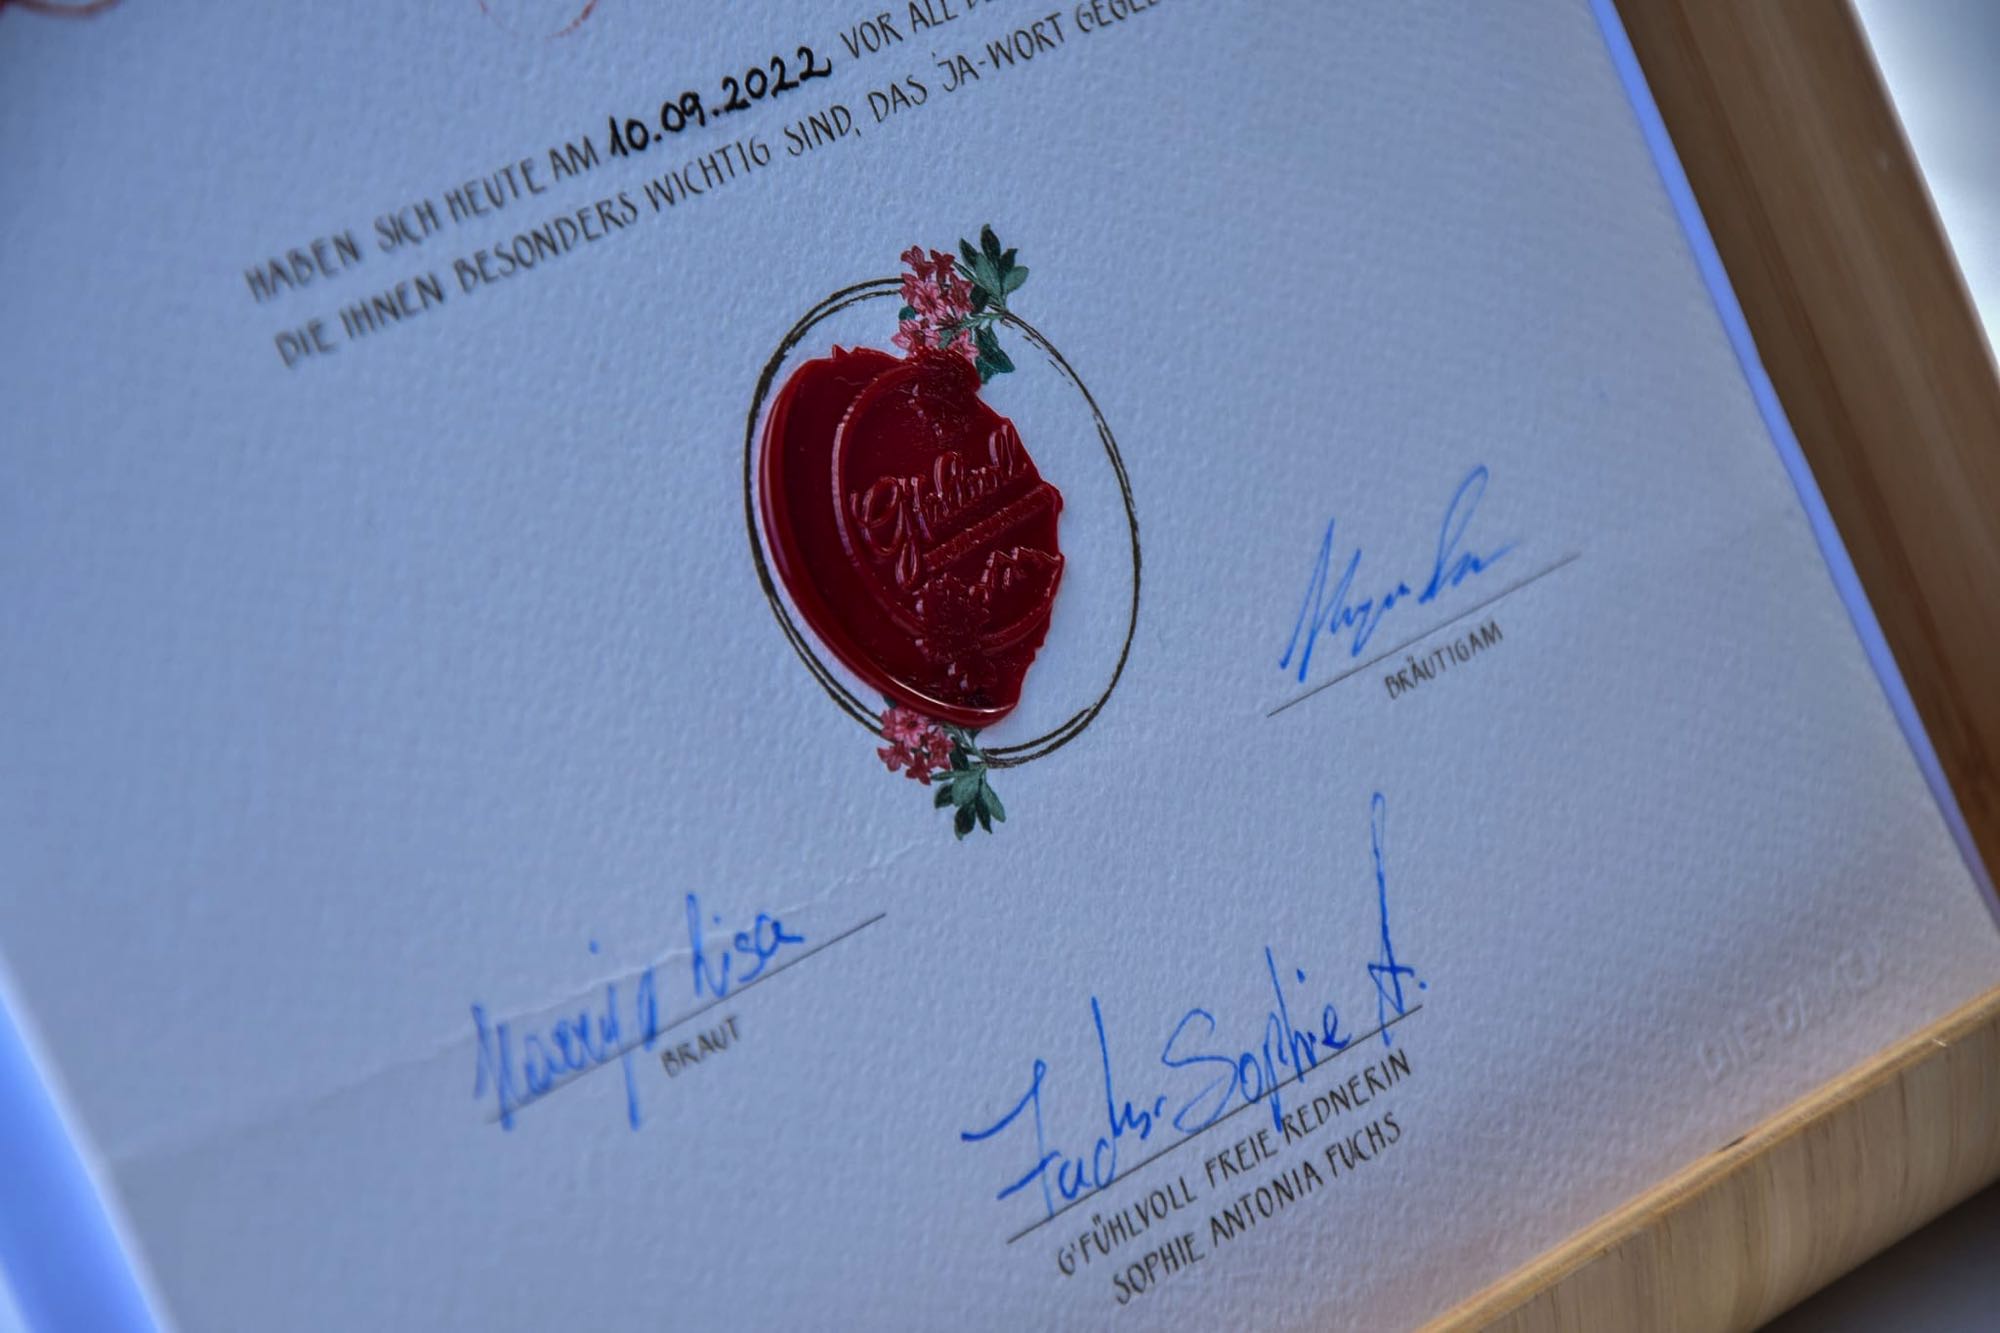 HABEN SICH HEUTE AM 10.09.2022 VOR ALL
DIE IHNEN BESONDERS WICHTIG SIND, DAS JA-WORT
G'fühlvoll
BRÄUTIGAM
Lisa
BRAUT
Fuchs Sophie A.
G'FÜHLVOLL FREIE REDNERIN
SOPHIE ANTONIA FUCHS